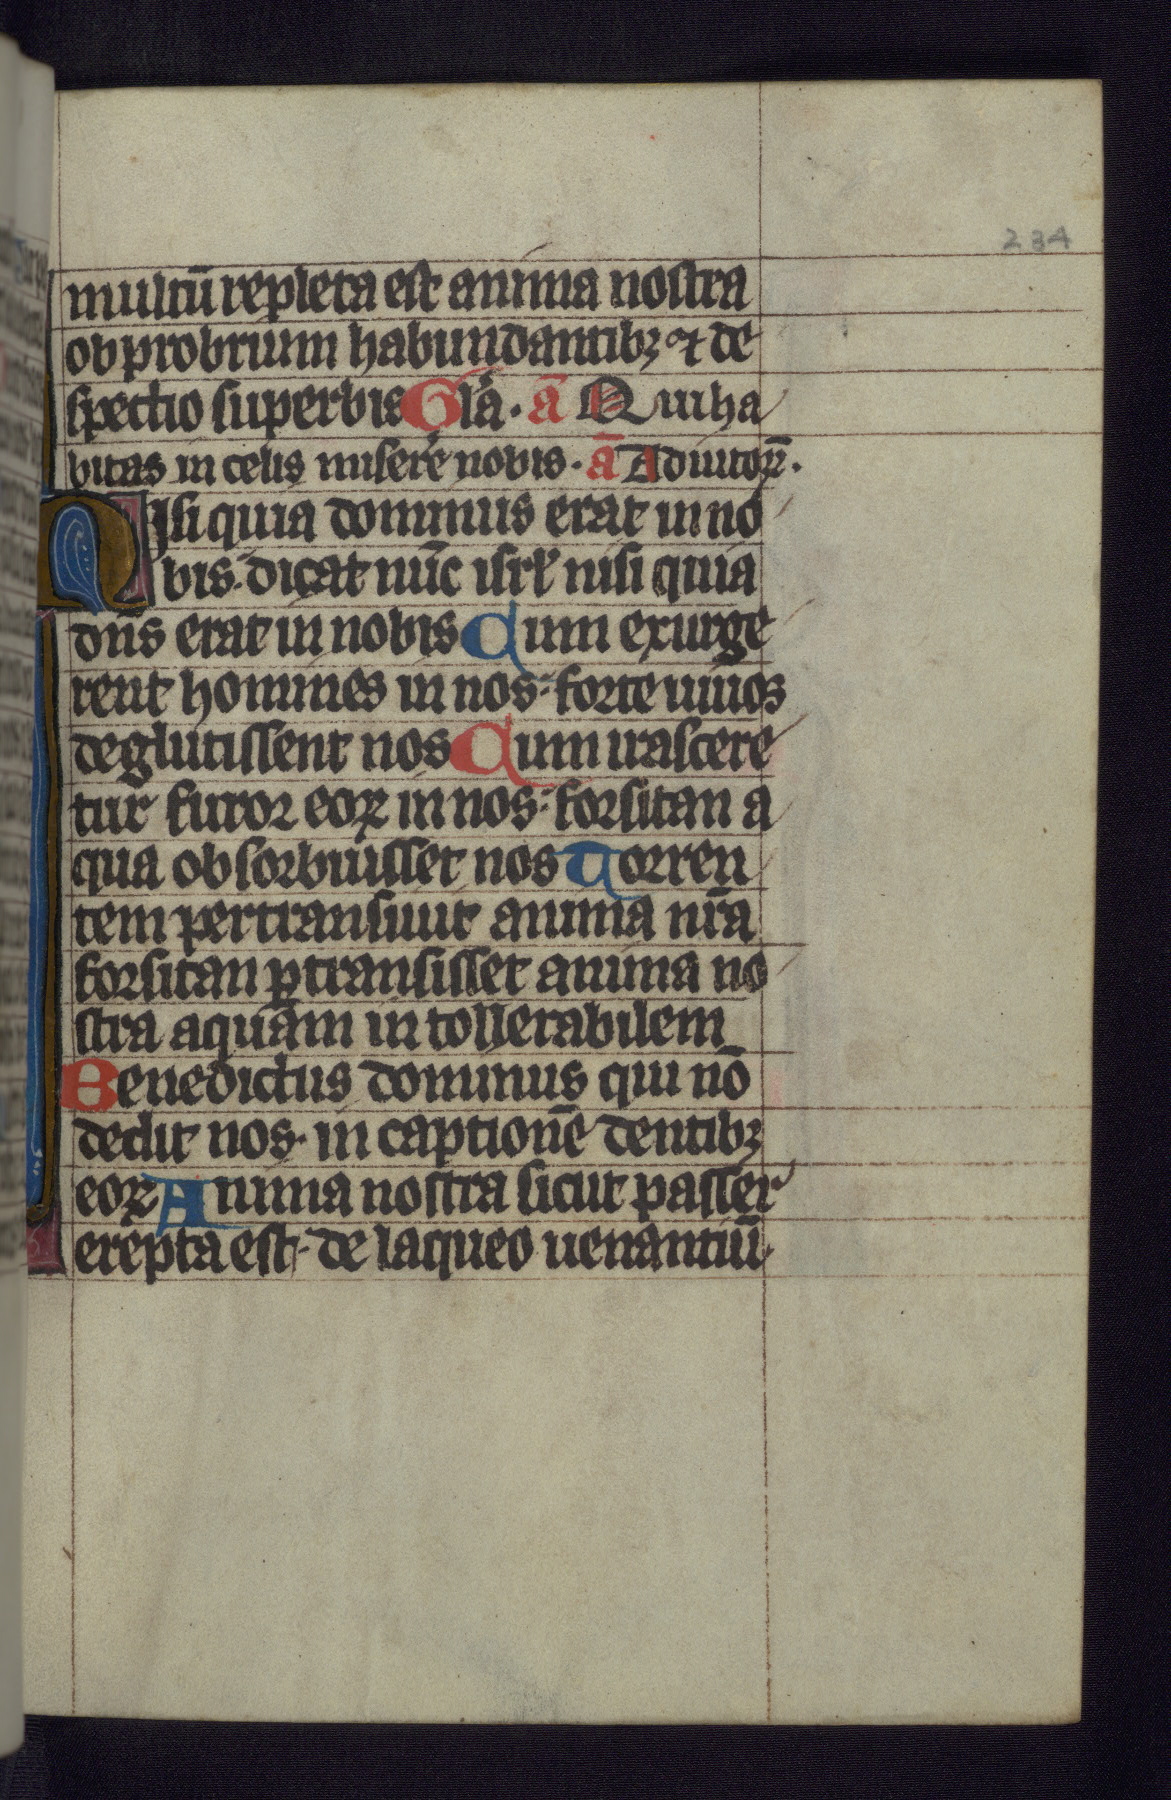 234
multū repleta est anima nostra
obprobrium habundantibꝫ ⁊ de
spectio superbis Glā. ā Qui ha
bitas in celis miserere nobis. ā Adiutoꝝ̄.
Nisi quia dominus erat in no
bis. dicat nūc isrl̄ nisi quia
dn̄s erat in nobis Cum exurge
rent homines in nos: forte uiuos
deglutissent nos Cum irascere
tur furor eoꝝ in nos: forsitan a
qua obsorbuisset nos Torren
tem pertransiuit anima nr̄a
forsitan ꝑtransisset anima no
stra aquam in tollerabilem
Benedictus dominus qui nō
dedit nos. in captionē dentibꝫ
eoꝝ Anima nostra sicut passer
erepta est. de laqueo uenantiū.